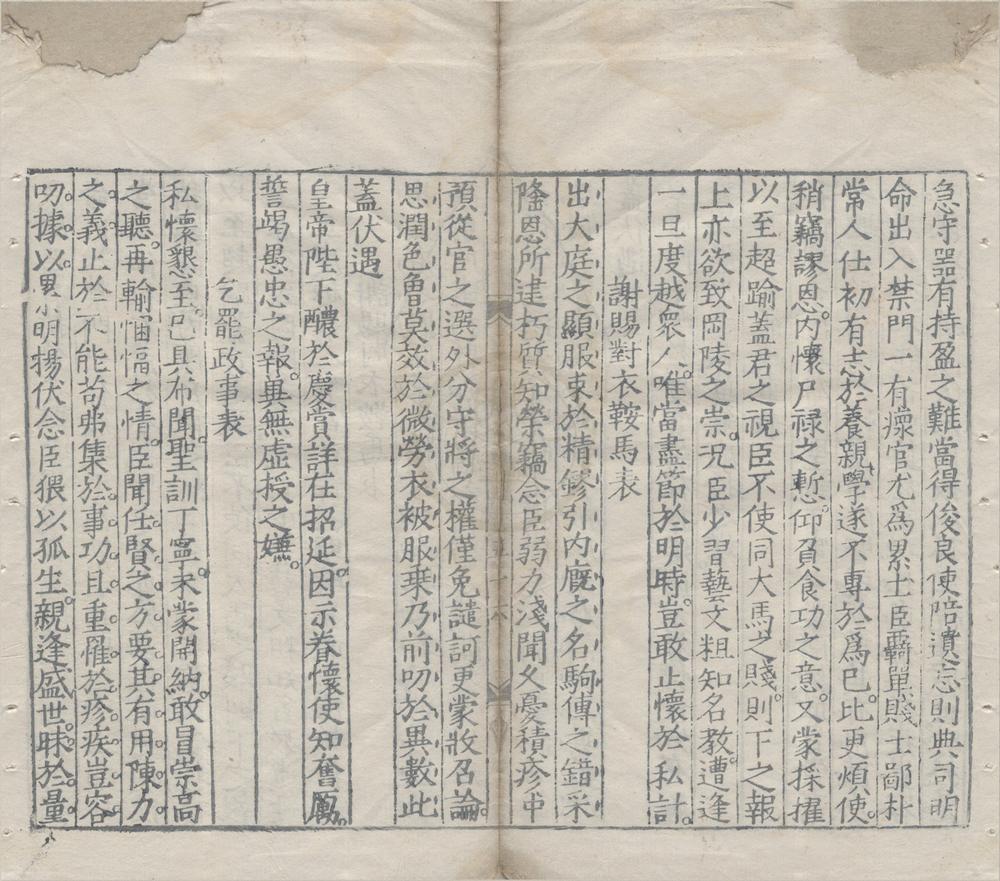 急守噐有持盈之難當得俊良使陪遺忘則典司明
命出入禁門一有瘝官尤爲累士臣覊單賤士鄙朴
常人仕初有志於養親學遂不專於爲己比更煩使
稍竊謬恩内懷尸禄之慙仰負食功之意又蒙採擢
以至超踰蓋君之視臣不使同犬馬之賤則下之報
上亦欲致岡陵之崇况臣少習藝文粗知名教遭逢
一旦度越衆人唯當盡節於明時豈敢止懷於私計
謝賜對衣鞍馬表
出大庭之顯服束於精鏐引内廐之名駒傳之錯采
隆恩所逮朽質知榮竊念臣弱力淺聞久憂積疹
預從官之選外分守將之權僅免譴訶更蒙收召論
思潤色曾莫效於微勞衣被服乗乃前叨於異數此
蓋伏遇
皇帝陛下醲於慶賞詳在招延因示眷懷使知奮厲
誓竭愚忠之報無虚授之嫌
乞罷政事表
私懷懇至已具布聞聖訓丁寧未蒙開納敢冒崇高
之聽再輸悃愊之情臣聞任賢之方要其有用陳力
之義止於不能苟弗集於事功且重罹於疹疾豈容
叨據以累明揚伏念臣猥以孤生親逢盛世昧於量